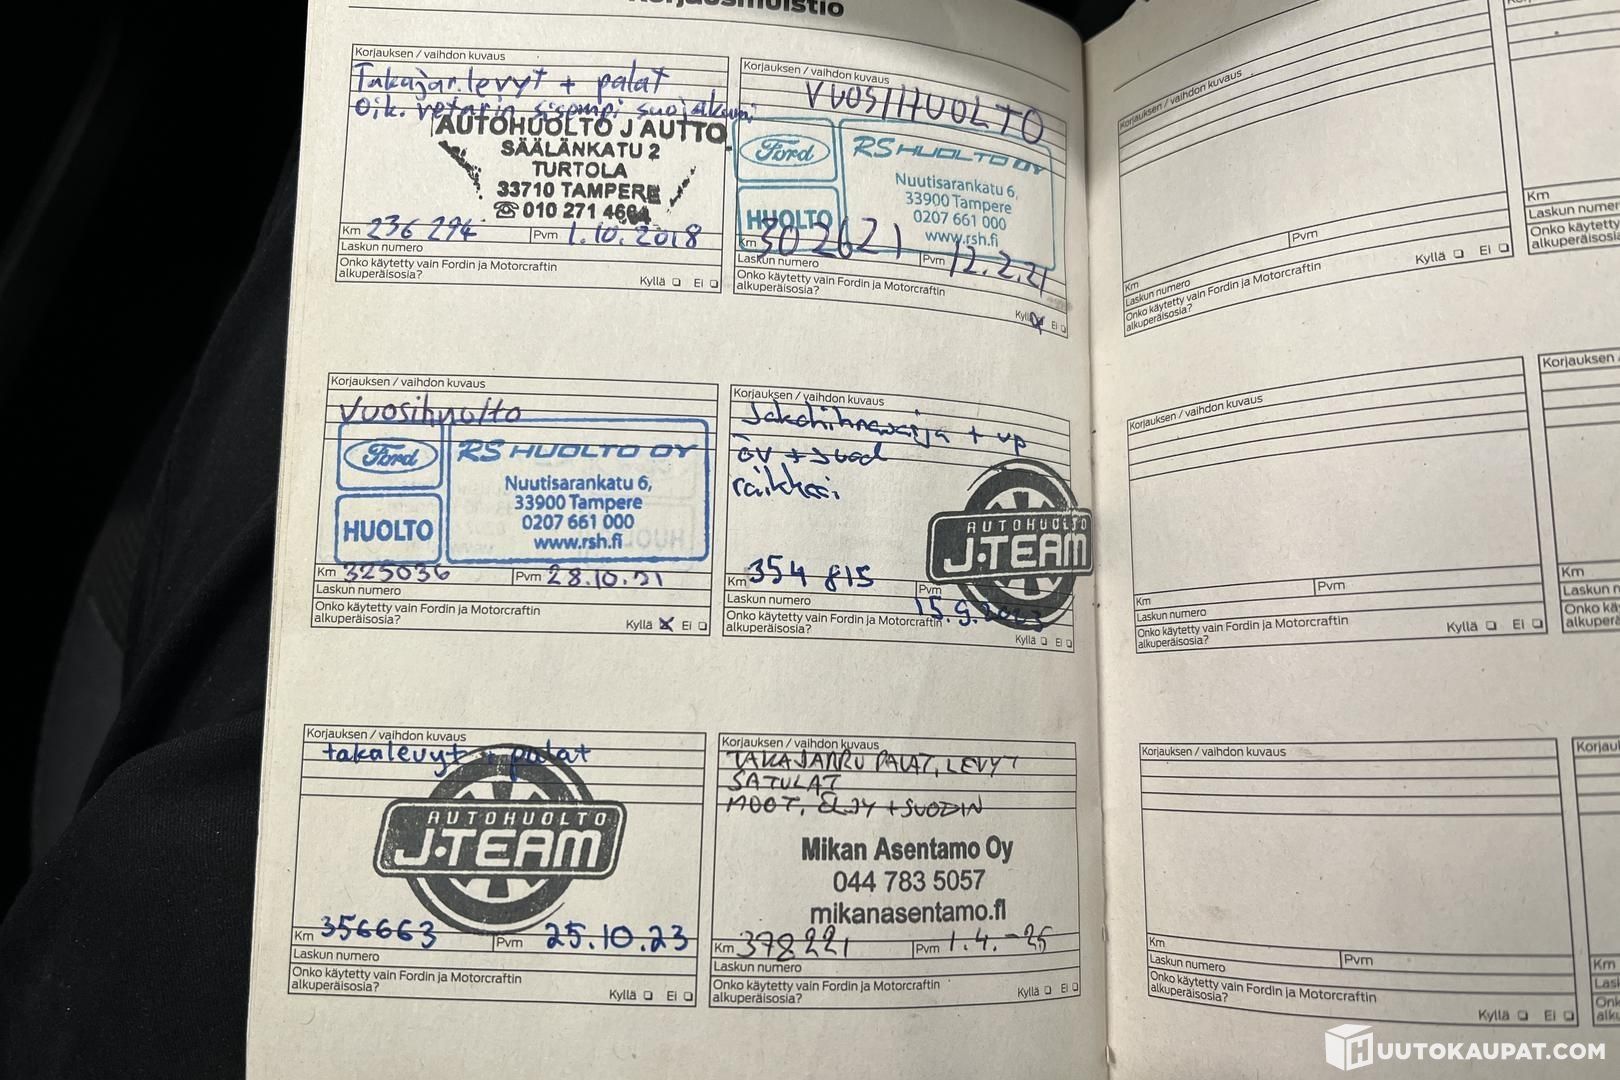 Korjausmuistio
Korjauksen / vaihdon kuvaus
Takajar.levyt + palat
Oik. vetarin sisempi suojakumi
AUTOHUOLTO J AUTTO
SÄÄLÄNKATU 2
TURTOLA
33710 TAMPERE
☎ 010 271 4664
Km 236 294 Pvm 1.10.2018
Laskun numero
Onko käytetty vain Fordin ja Motorcraftin
alkuperäisosia?
Kyllä Ei
Korjauksen / vaihdon kuvaus
VUOSIHUOLTO
Ford
HUOLTO
RS HUOLTO OY
Nuutisarankatu 6,
33900 Tampere
0207 661 000
www.rsh.fi
Km 302621 Pvm 12.2.21
Laskun numero
Onko käytetty vain Fordin ja Motorcraftin
alkuperäisosia?
Kyllä Ei
Korjauksen / vaihdon kuvaus
Vuosihuolto
Ford
HUOLTO
RS HUOLTO OY
Nuutisarankatu 6,
33900 Tampere
0207 661 000
www.rsh.fi
Km 325036 Pvm 28.10.21
Laskun numero
Onko käytetty vain Fordin ja Motorcraftin
alkuperäisosia?
Kyllä Ei
Korjauksen / vaihdon kuvaus
Jakohihnasarja + vp
öv + suod
AUTOHUOLTO
J-TEAM
Km 354 815 Pvm
15.9.2023
Laskun numero
Onko käytetty vain Fordin ja Motorcraftin
alkuperäisosia?
Kyllä Ei
Korjauksen / vaihdon kuvaus
takalevyt + palat
AUTOHUOLTO
J-TEAM
Km 356663 Pvm 25.10.23
Laskun numero
Onko käytetty vain Fordin ja Motorcraftin
alkuperäisosia?
Kyllä Ei
Korjauksen / vaihdon kuvaus
TAKAJARRU PALAT, LEVYT
SATULAT
MOOT, ÖLJY + SUODIN
Mikan Asentamo Oy
044 783 5057
mikanasentamo.fi
Km 378221 Pvm 1.4.-25
Laskun numero
Onko käytetty vain Fordin ja Motorcraftin
alkuperäisosia?
Kyllä Ei
Korjauksen / vaihdon kuvaus
Km Pvm
Laskun numero
Onko käytetty vain Fordin ja Motorcraftin
alkuperäisosia?
Kyllä Ei
Km
Laskun numero
Onko käytetty
alkuperäisosia
Korjauksen / vaihdon kuvaus
Km Pvm
Laskun numero
Onko käytetty vain Fordin ja Motorcraftin
alkuperäisosia?
Kyllä Ei
Korjauksen
Km
Laskun
Korjauksen / vaihdon kuvaus
Km Pvm
Laskun numero
Onko käytetty vain Fordin ja Motorcraftin
alkuperäisosia?
Kyllä Ei
Km
HUUTOKAUPAT.COM